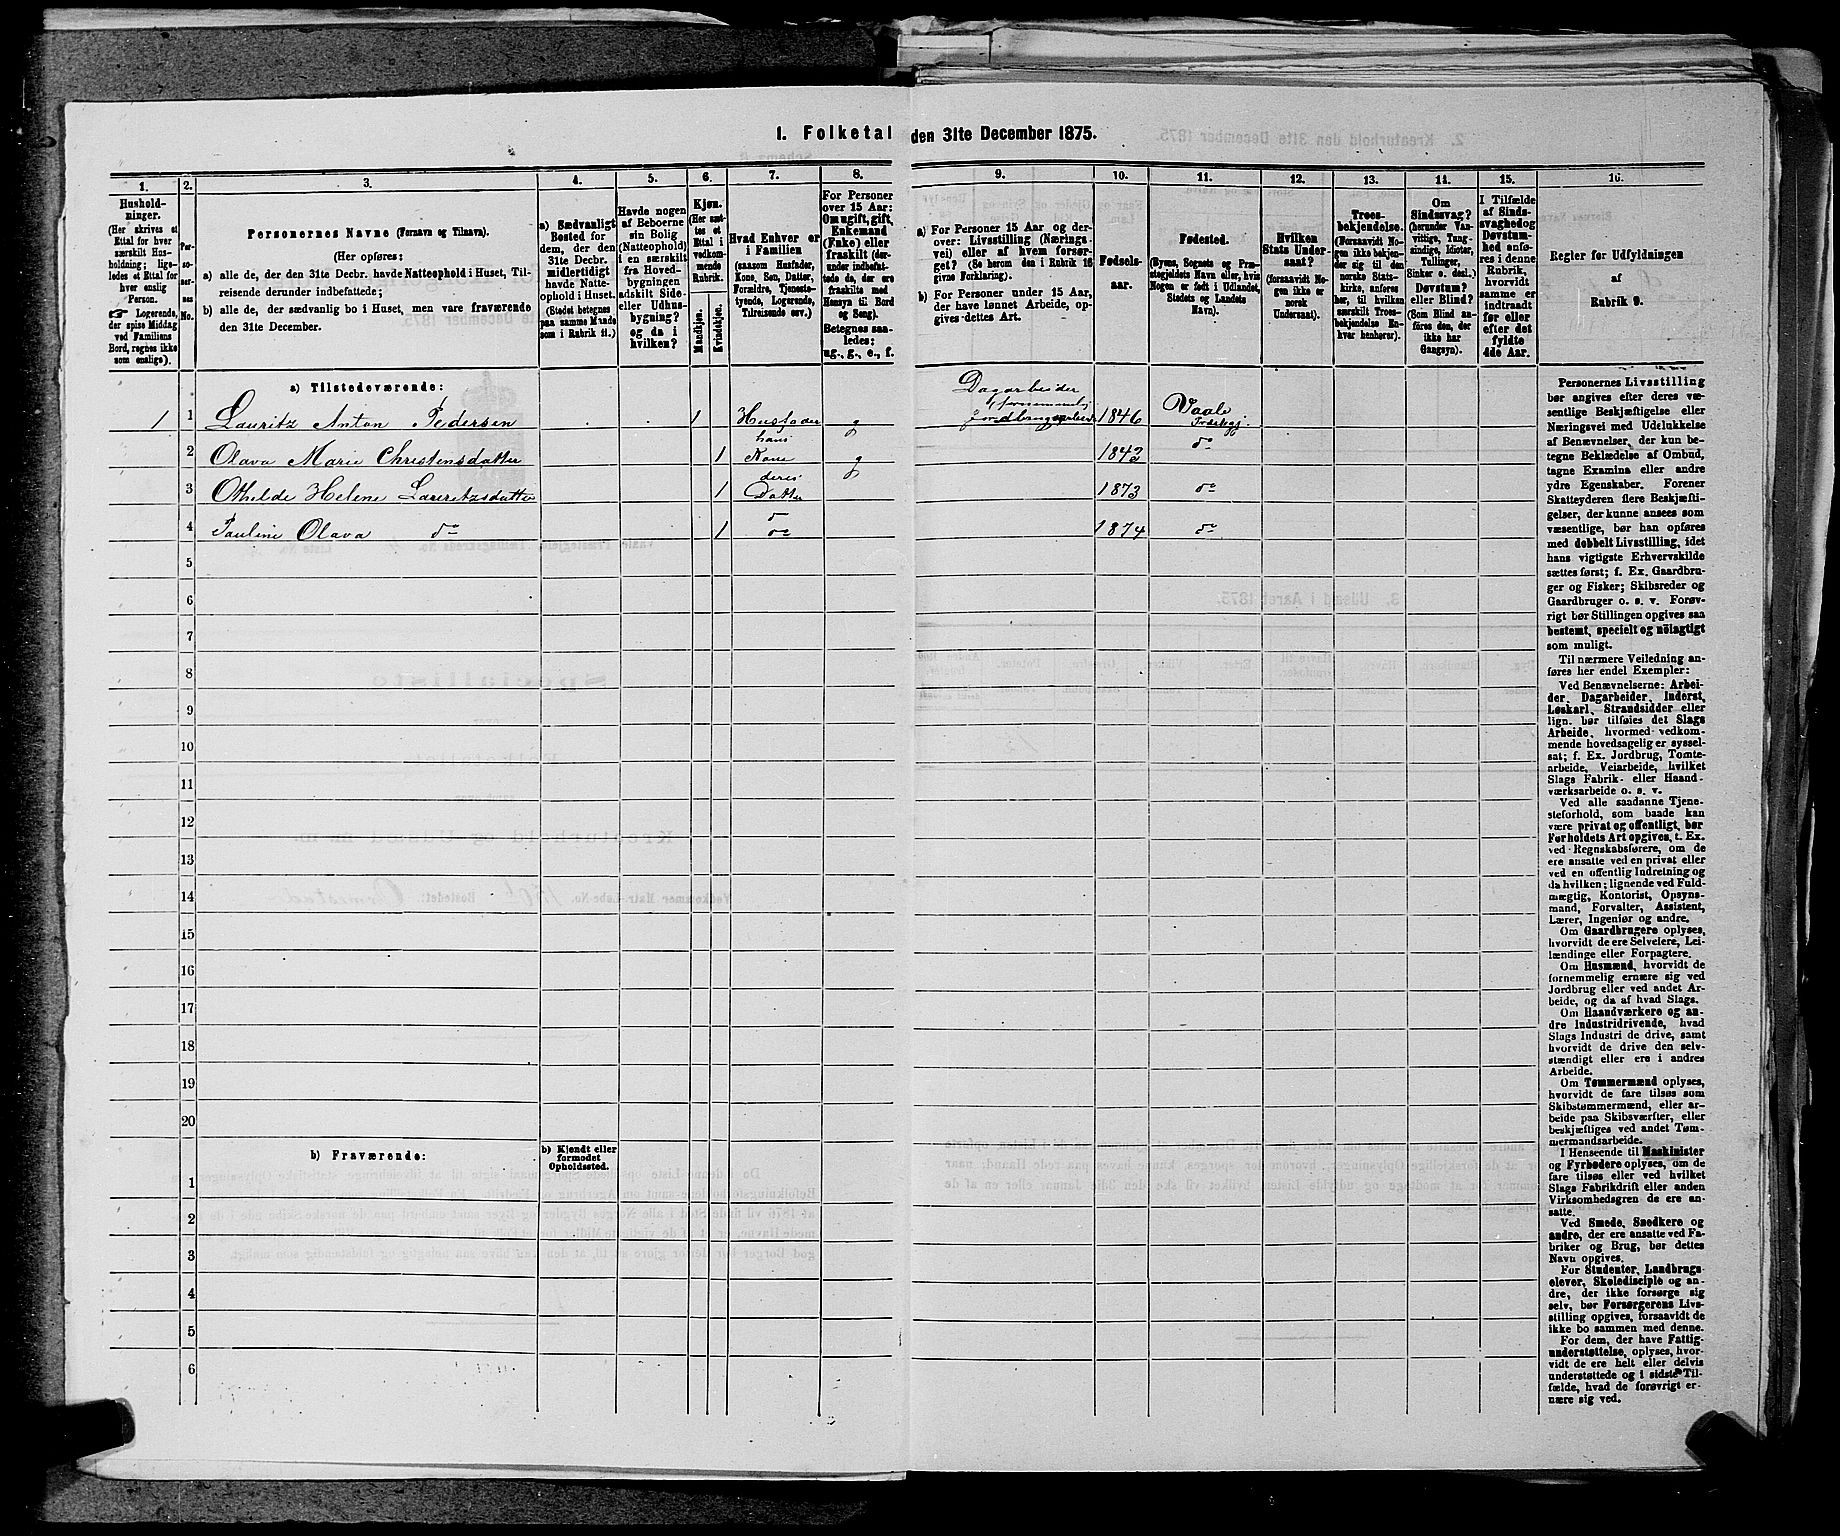 1. Folketal den 31te December 1875.
1.
2.
3.
4.
5.
6.
7.
8.
9.
10.
11.
12.
13.
14.
15.
16.
Hushold-
ninger.
(Her skrives et
Ettal for hver
særskilt Hus-
holdning; lige-
ledes et Ettal for
hver enslig
Person.
☞ Logerende,
der spise Middag
ved Familiens
Bord, regnes ikke
som enslige).
Per-
so-
ner-
nes
No.
Personernes Navne (Fornavn og Tilnavn).
(Her opføres:
a) alle de, der den 31te Decbr. havde Natteophold i Huset, Til-
reisende derunder indbefattede;
b) alle de, der sædvanlig bo i Huset, men vare fraværende
den 31te December.
a) Sædvanligt
Bosted for
dem, der den
31te Decbr.
midlertidigt
havde Natte-
ophold i Huset.
(Stedet betegnes
paa samme Maade
som i Rubrik 11.)
Havde nogen
af Beboerne
sin Bolig
(Natteophold)
i en særskilt
fra Hoved-
bygningen
adskilt Side-
eller Udhus-
bygning?
og da i
hvilken?
Kjøn.
(Her sæt-
tes et
Ettal i
vedkom-
mende
Rubrik.
Mandkjøn.
Kvindekjøn.
Hvad Enhver er
i Familien
(saasom Husfader,
Kone, Søn, Datter,
Forældre, Tjeneste-
tyende, Logerende,
Tilreisende osv.)
For Personer
over 15 Aar:
Om ugift, gift,
Enkemand
(Enke) eller
fraskilt (der-
under indbefat-
tede de, der ere
fraskilte med
Hensyn til Bord
og Seng).
Betegnes saa-
ledes:
ug., g., e., f.
a) For Personer 15 Aar og der-
over: Livsstilling (Nærings-
vei) eller af hvem forsør-
get? (Se herom den i Rubrik 16
givne Forklaring).
b) For Personer under 15 Aar,
der have lønnet Arbeide, op-
gives dettes Art.
Fødsels-
aar.
Fødested.
(Byens, Sognets og Præ-
stegjeldets Navn eller, hvis
Nogen er født i Udlandet,
Stedets og Landets
Navn).
Hvilken
Stats Under-
saat?
(forsaavidt No-
gen ikke er
norsk
Undersaat).
Troes-
bekjendelse.
(Forsaavidt No-
gen ikke bekjen-
der sig til den
norske Stats-
kirke, anføres
her, til hvilken
særskilt Troes-
bekjendelse En-
hver henhører).
Om
Sindssvag?
(herunder Van-
vittige, Tung-
sindige, Idioter,
Tullinger,
Sinker o. desl.)
Døvstum?
eller Blind?
(Som Blind an-
føres den, der
ikke har
Gangsyn).
I Tilfælde
af Sinds-
svaghed og
Døvstum-
hed anfø-
res i denne
Rubrik,
hvorvidt
samme er
indtraadt
før eller
efter det
fyldte
4de Aar.
Regler for Udfyldningen
af
Rubrik 9.
a) Tilstedeværende:
1 1 Lauritz Anton Pedersen 1 Husfader g Dagarbeider fornemmelig Jordbrugsarbeide 1846 Vaale Prstgj.
2 Olava Marie Christensdatter 1 hans Kone g 1842 do
3 Othilde Helene Lauritzsdatter 1 deres Datter 1873 do
4 Pauline Olava do 1 do do 1874 do
5
6
7
8
9
10
11
12
13
14
15
16
17
18
19
20
b) Fraværende:
b) Kjendt eller
formodet
Opholdssted.
1
2
3
4
5
6
Personernes Livsstilling
bør angives efter deres væ-
sentlige Beskjæftigelse eller
Næringsvei med Udelukkelse
af Benævnelser, der kun be-
tegne Beklædelse af Ombud,
tagne Examina eller andre
ydre Egenskaber. Forener
Skatteyderen flere Beskjæfti-
gelser, der kunne ansees som
væsentlige, bør han opføres
med dobbelt Livsstilling, idet
hans vigtigste Erhvervskilde
sættes først; f. Ex. Gaardbru-
ger og Fisker; Skibsreder og
Gaardbruger o. s. v. Forøv-
rigt bør Stillingen opgives saa
bestemt, specielt og nöiagtigt
som muligt.
Til nærmere Veiledning an-
føres her endel Exempler:
Ved Benævnelserne: Arbei-
der, Dagarbeider, Inderst,
Løskarl, Strandsidder eller
lign. bør tilføies det Slags
Arbeide, hvormed vedkom-
mende hovedsagelig er syssel-
sat; f. Ex. Jordbrug, Tomte-
arbeide, Veiarbeide, hvilket
Slags Fabrik- eller Haand-
værksarbeide o. s. v.
Ved alle saadanne Tjene-
steforhold, som baade kan
være privat og offentligt, bør
Forholdets Art opgives, t. Ex.
ved Regnskabsførere, om de
ere ansatte ved en privat eller
ved en offentlig Indretning og
da hvilken; lignende ved Fuld-
mægtig, Kontorist, Opsyns-
mand, Forvalter, Assistent,
Lærer, Ingeniør og andre.
Om Gaardbrugere oplyses,
hvorvidt de ere Selveiere, Lei-
lændinge eller Forpagtere.
Om Husmænd, hvorvidt de
fornemmelig ernære sig ved
Jordbrug eller ved andet Ar-
beide, og da af hvad Slags.
Om Haandværkere og an-
dre Industridrivende, hvad
Slags Industri de drive, samt
hvorvidt de drive den selv-
stændigt eller ere i andres
Arbeide.
Om Tømmermænd oplyses,
hvorvidt de fare tilsøs som
Skibstømmermænd, eller ar-
beide paa Skibsværfter, eller
beskjæftiges ved andet Tøm-
mermandsarbeide.
I Henseende til Maskinister
og Fyrbødere oplyses, om de
fare tilsøs eller ved hvilket
Slags Fabrikdrift eller anden
Virksomhedsgren de ere an-
satte.
Ved Smede, Snedkere og
andre, der ere ansatte ved Fa-
briker og Brug, bør dettes
Navn opgives.
For Studenter, Landbrugs-
elever, Skoledisciple og an-
dre, der ikke forsørge sig
selv, bør Forsørgerens Livs-
stilling opgives, forsaavidt de
ikke bo sammen med denne.
For dem, der have Fattig-
understøttelse, oplyses, hvor-
vidt de ere helt eller delvis
understøttede og i sidste Til-
fælde, hvad de forøvrigt er-
nære sig ved.